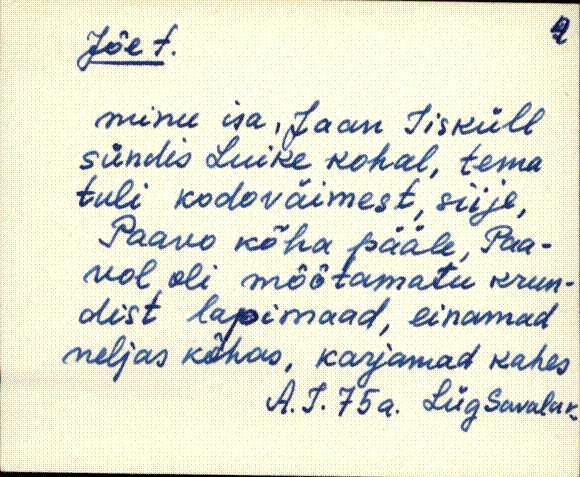 2
Jõe t.
minu isa, Jaan Iisküll
sündis Luike kohal, tema
tuli kodoväimest, siije,
Paavo kõha pääle, Paa-
vol oli mõõtamatu krun-
dist lapimaad, einamad
neljas kõhas, karjamad kahes
A. I. 75 a. Lüg Savala k.